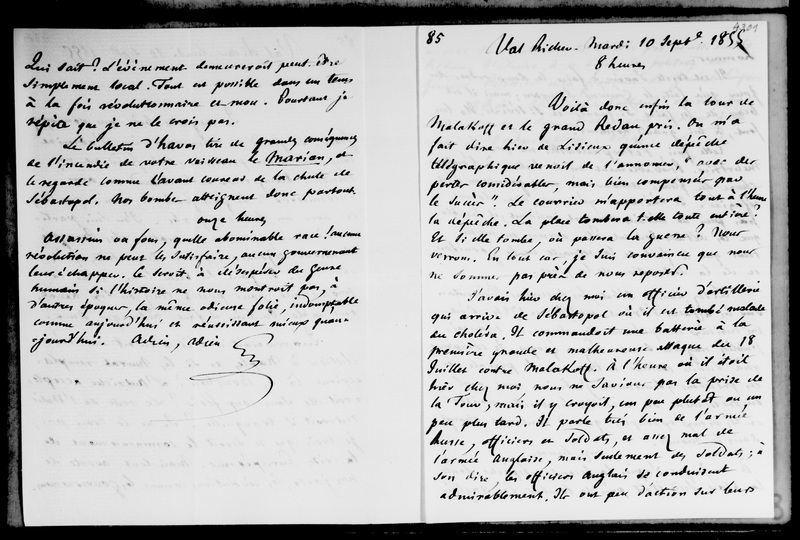 Qui sait ? L'événement demeurerait peut-être
simplement local. Tout est possible dans un tems
à la fois révolutionnaire et mou. Pourtant je
répète que je ne le crois pas.
Le bulletin d'havas tire de grandes conséquences
de l'incendie de votre vaisseau le Marian, et
le regarde comme l'avant coureur de la chute de
Sébastopol. Nos bombes atteignent donc partout.
onze heures
Assassins ou fous, quelle abominable race ! aucune
révolution ne peut les satisfaire, aucun gouvernement
leur échapper. Ce seroit à désespérer du genre
humain si l'histoire ne nous montroit pas, à
d'autres époques, la même odieuse folie, indomptable
comme aujourd'hui et réussissant mieux qu'au-
jourd'hui. Adieu, adieu
4201
85
Val Richer. Mardi 10 Septe. 1855
8 heures
Voilà donc enfin la tour de
Malakoff et le grand Redan pris. On m'a
fait dire hier de Lisieux qu'une dépêche
télégraphique venoit de l'annoncer, " avec des
pertes considérables, mais bien compensées par
le succès ". Le courrier m'apportera tout à l'heure
la dépêche. La place tombera-t-elle toute entière ?
Et si elle tombe, où passera la guerre ? Nous
verrons. En tout cas, je suis convaincu que nous
ne sommes pas près de nous reposer.
J'avais hier chez moi un officier d'artillerie
qui arrive de Sébastopol où il est tombé malade
du choléra. Il commandoit une batterie à la
première grande et malheureuse attaque du 18
Juillet contre Malakoff. À l'heure où il étoit
hier chez moi nous ne savions pas la prise de
la Tour, mais il y croyoit, un peu plutôt ou un
peu plus tard. Il parle très bien de l'armée
Russe, officiers et soldats, et assez mal de
l'armée Anglaise, mais seulement des soldats ; à
son dire les officiers Anglais se conduisent
admirablement. Ils ont peu d'action sur leurs